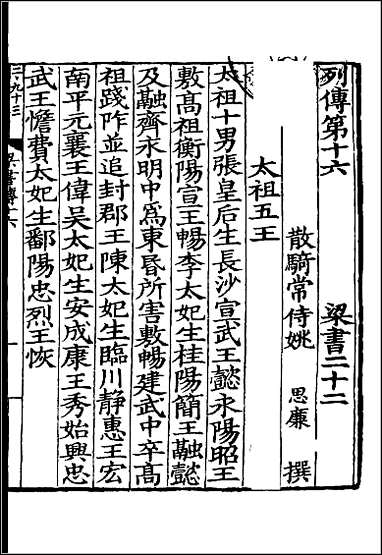 列傳第十六 梁書二十二
散騎常侍姚 思廉 撰
太祖五王
太祖十男張皇后生長沙宣武王懿永陽昭王
敷髙祖衡陽宣王暢李太妃生桂陽簡王融懿
及融齊永明中爲東昏所害敷暢建武中卒髙
祖踐阼並追封郡王陳太妃生臨川靜惠王宏
南平元襄王偉吴太妃生安成康王秀始興忠
武王憺費太妃生鄱陽忠烈王恢